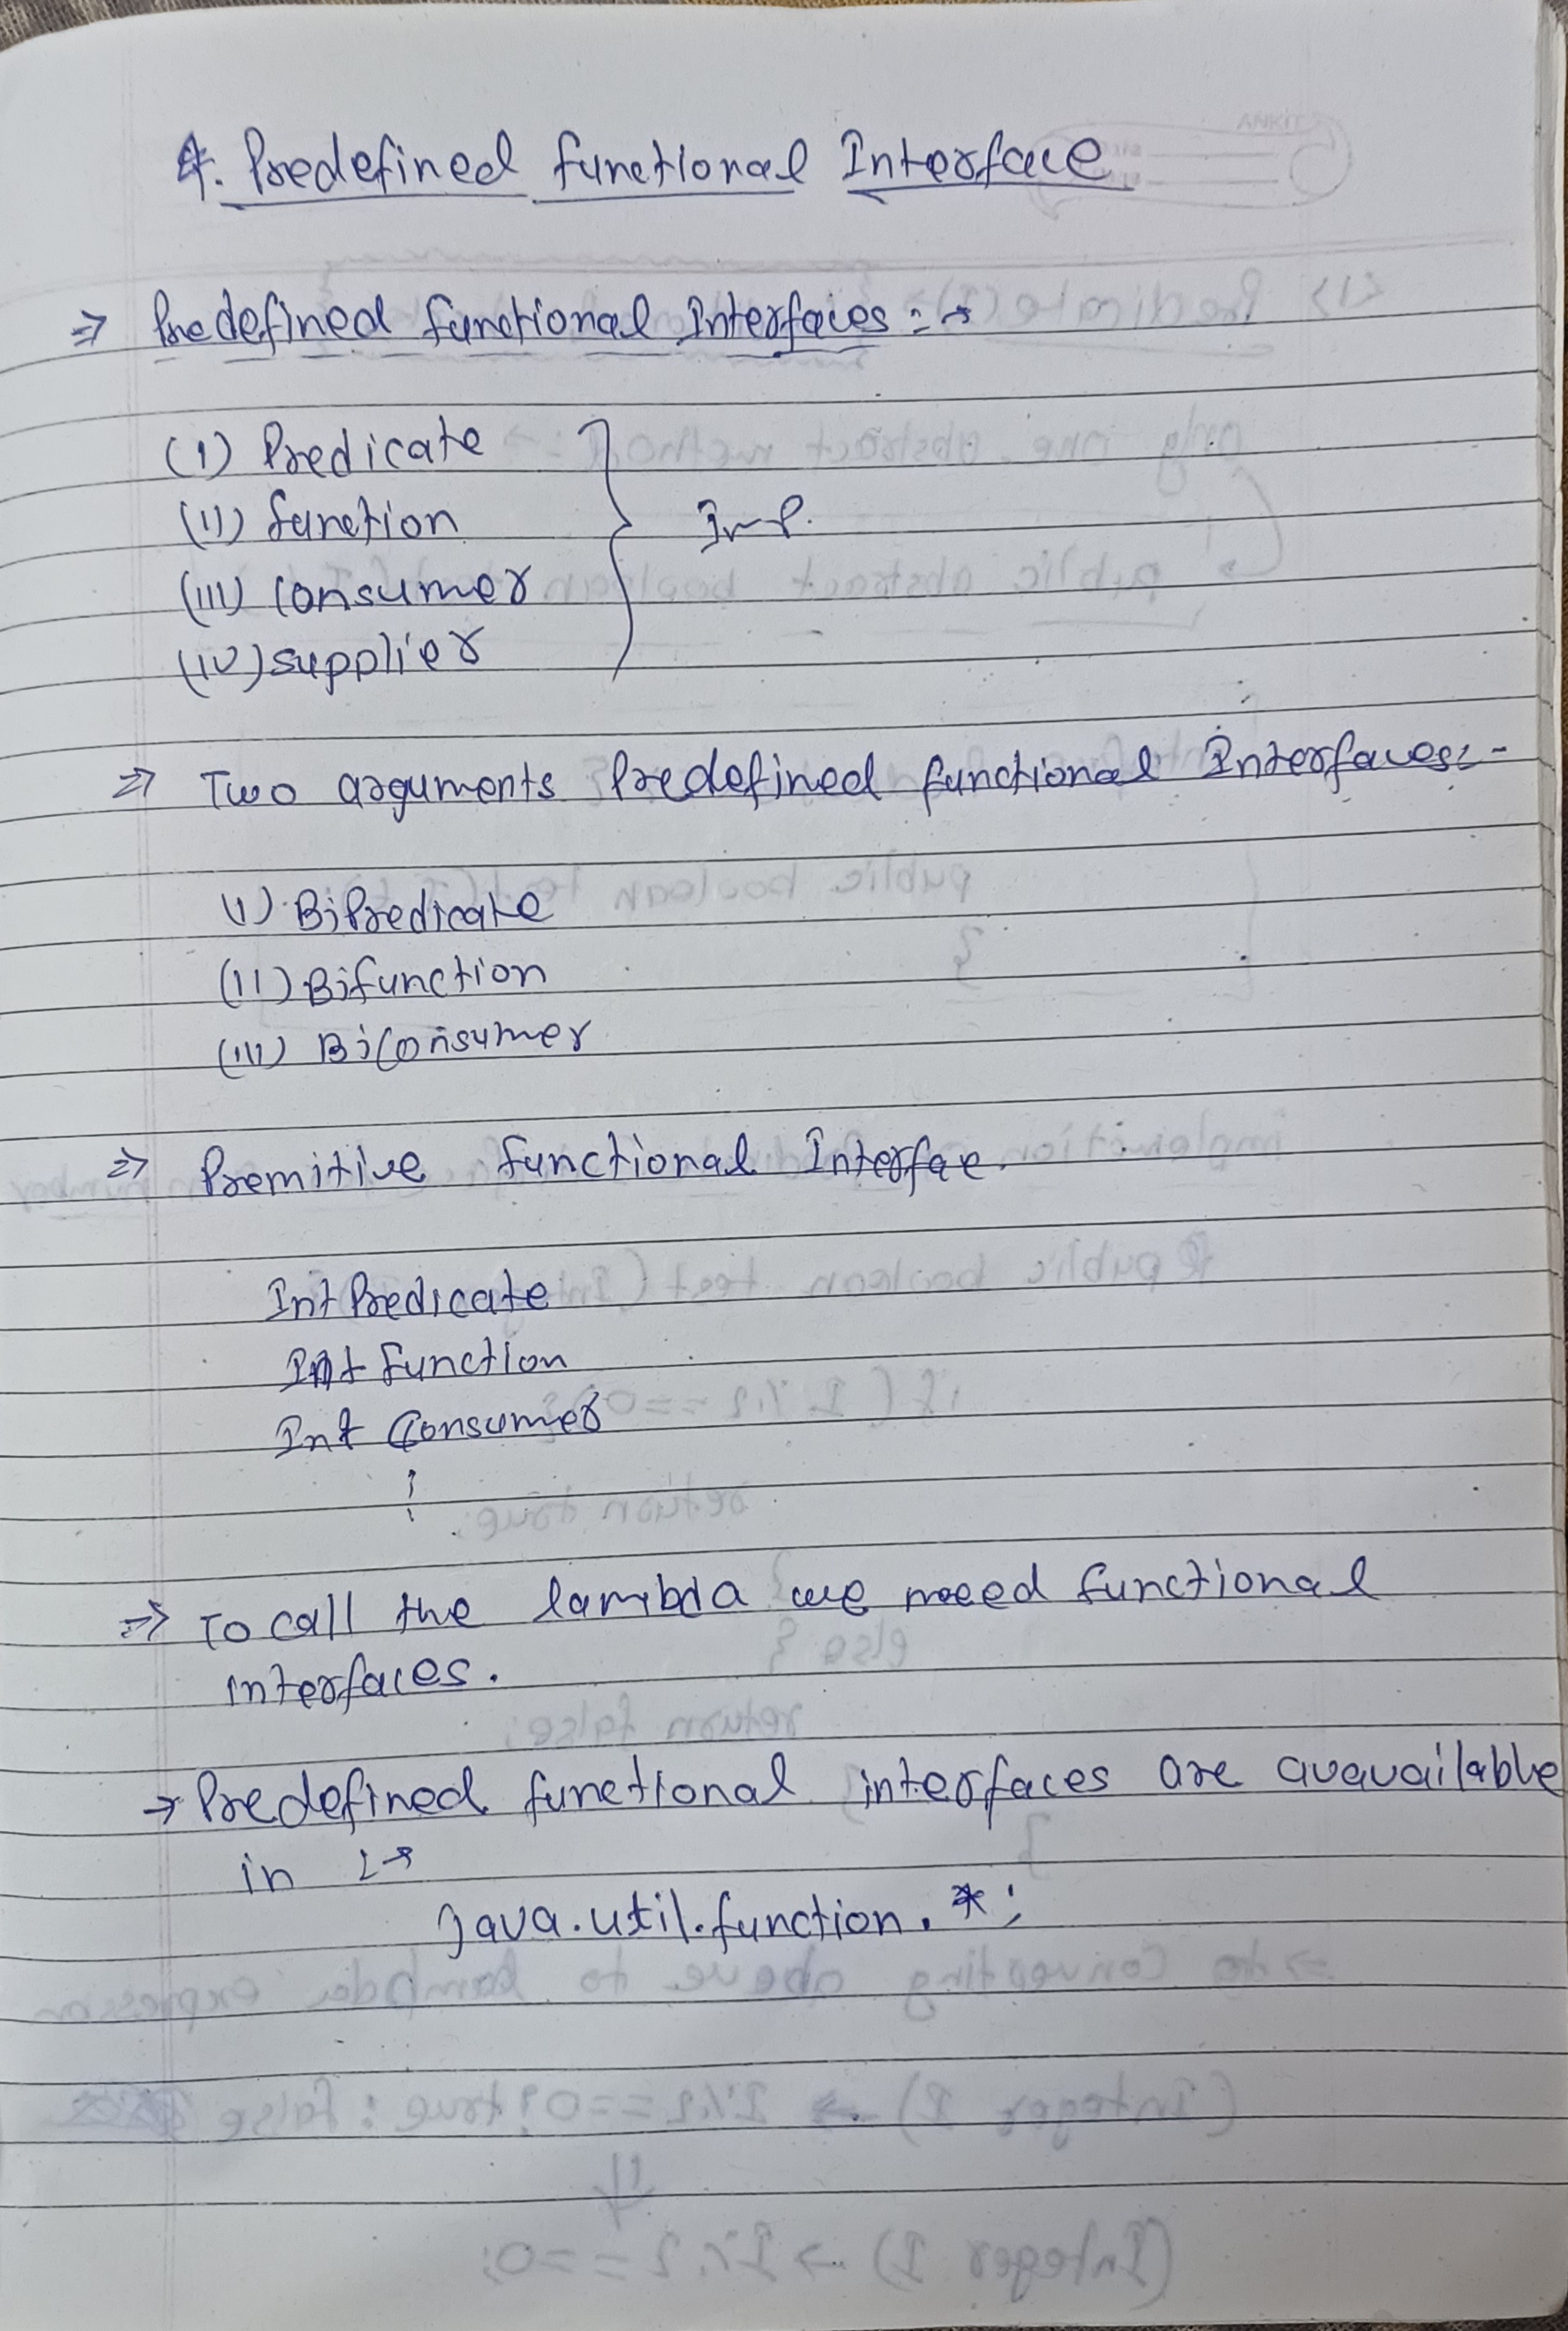 4. Predefined functional Interface
⇒ Predefined functional Interfaces :→
(I) Predicate
(II) function
(III) consumer
(IV) supplier
Imp.
⇒ Two arguments Predefined functional Interfaces:-
(I) BiPredicate
(II) Bifunction
(III) BiConsumer
⇒ Premitive functional Interfae.
Int Predicate
Int Function
Int Consumer
⋮
⇒ To call the lambda we need functional
interfaces.
→ Predefined functional interfaces are avavailable
in :→
java.util.function.*;